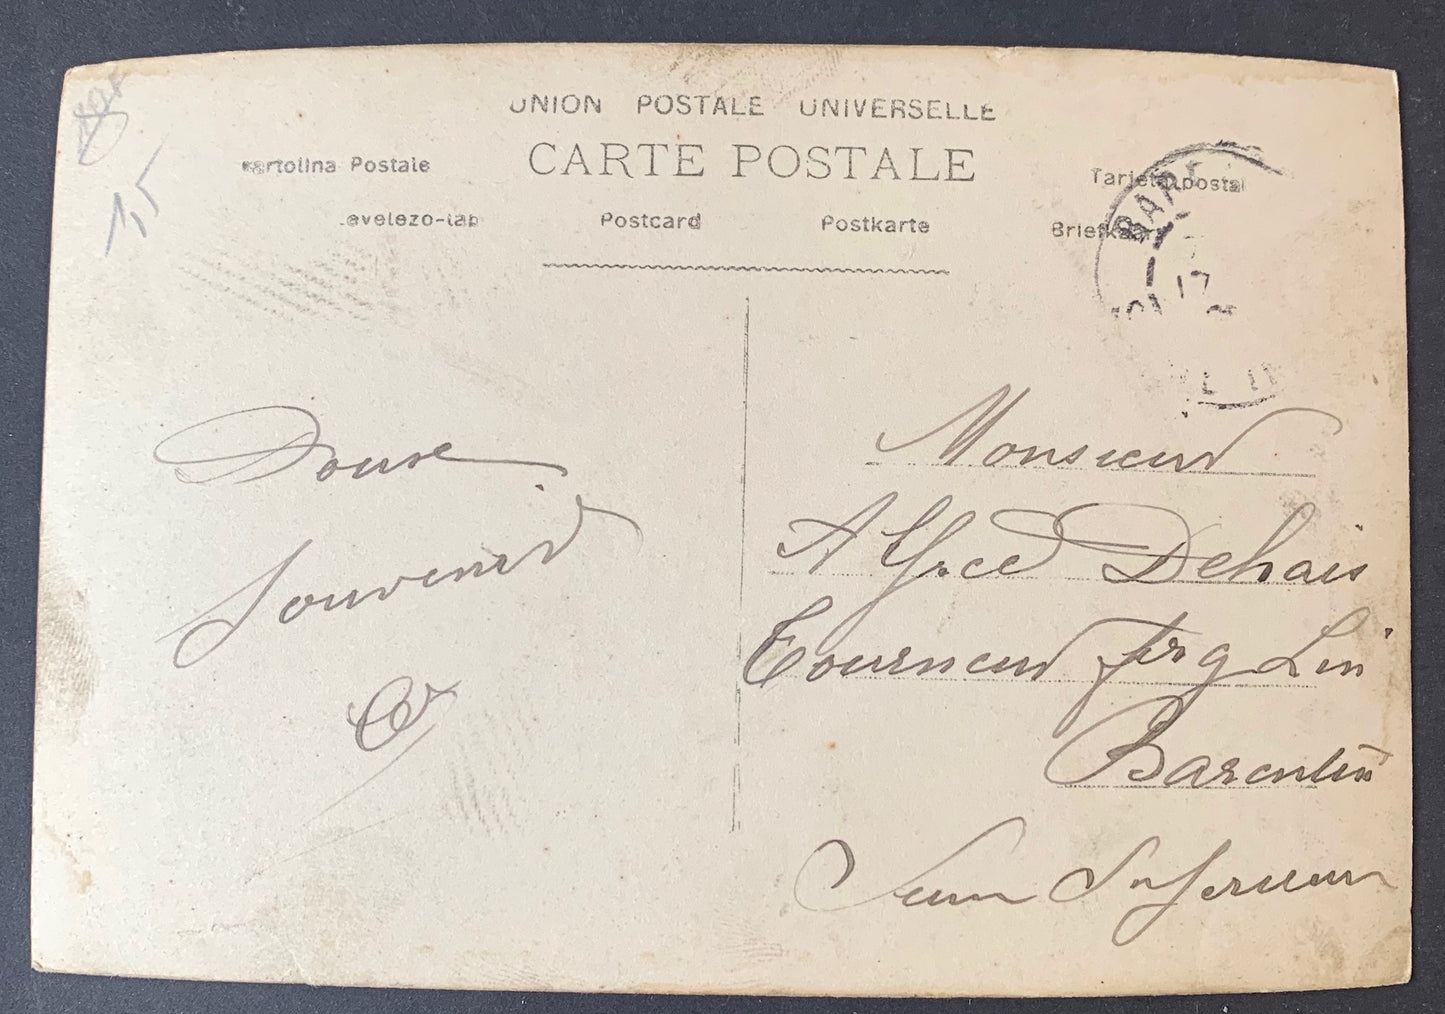 UNION POSTALE UNIVERSELLE
CARTE POSTALE
Cartolina Postale
Tarjeta postal
Levelezo-Lap
Postcard
Postkarte
Briefkaart
BARE
17
15
Doux
Souvenir
Monsieur
Alfred Dehais
Tourneur
Lin
Barentin
Seine Inferieure